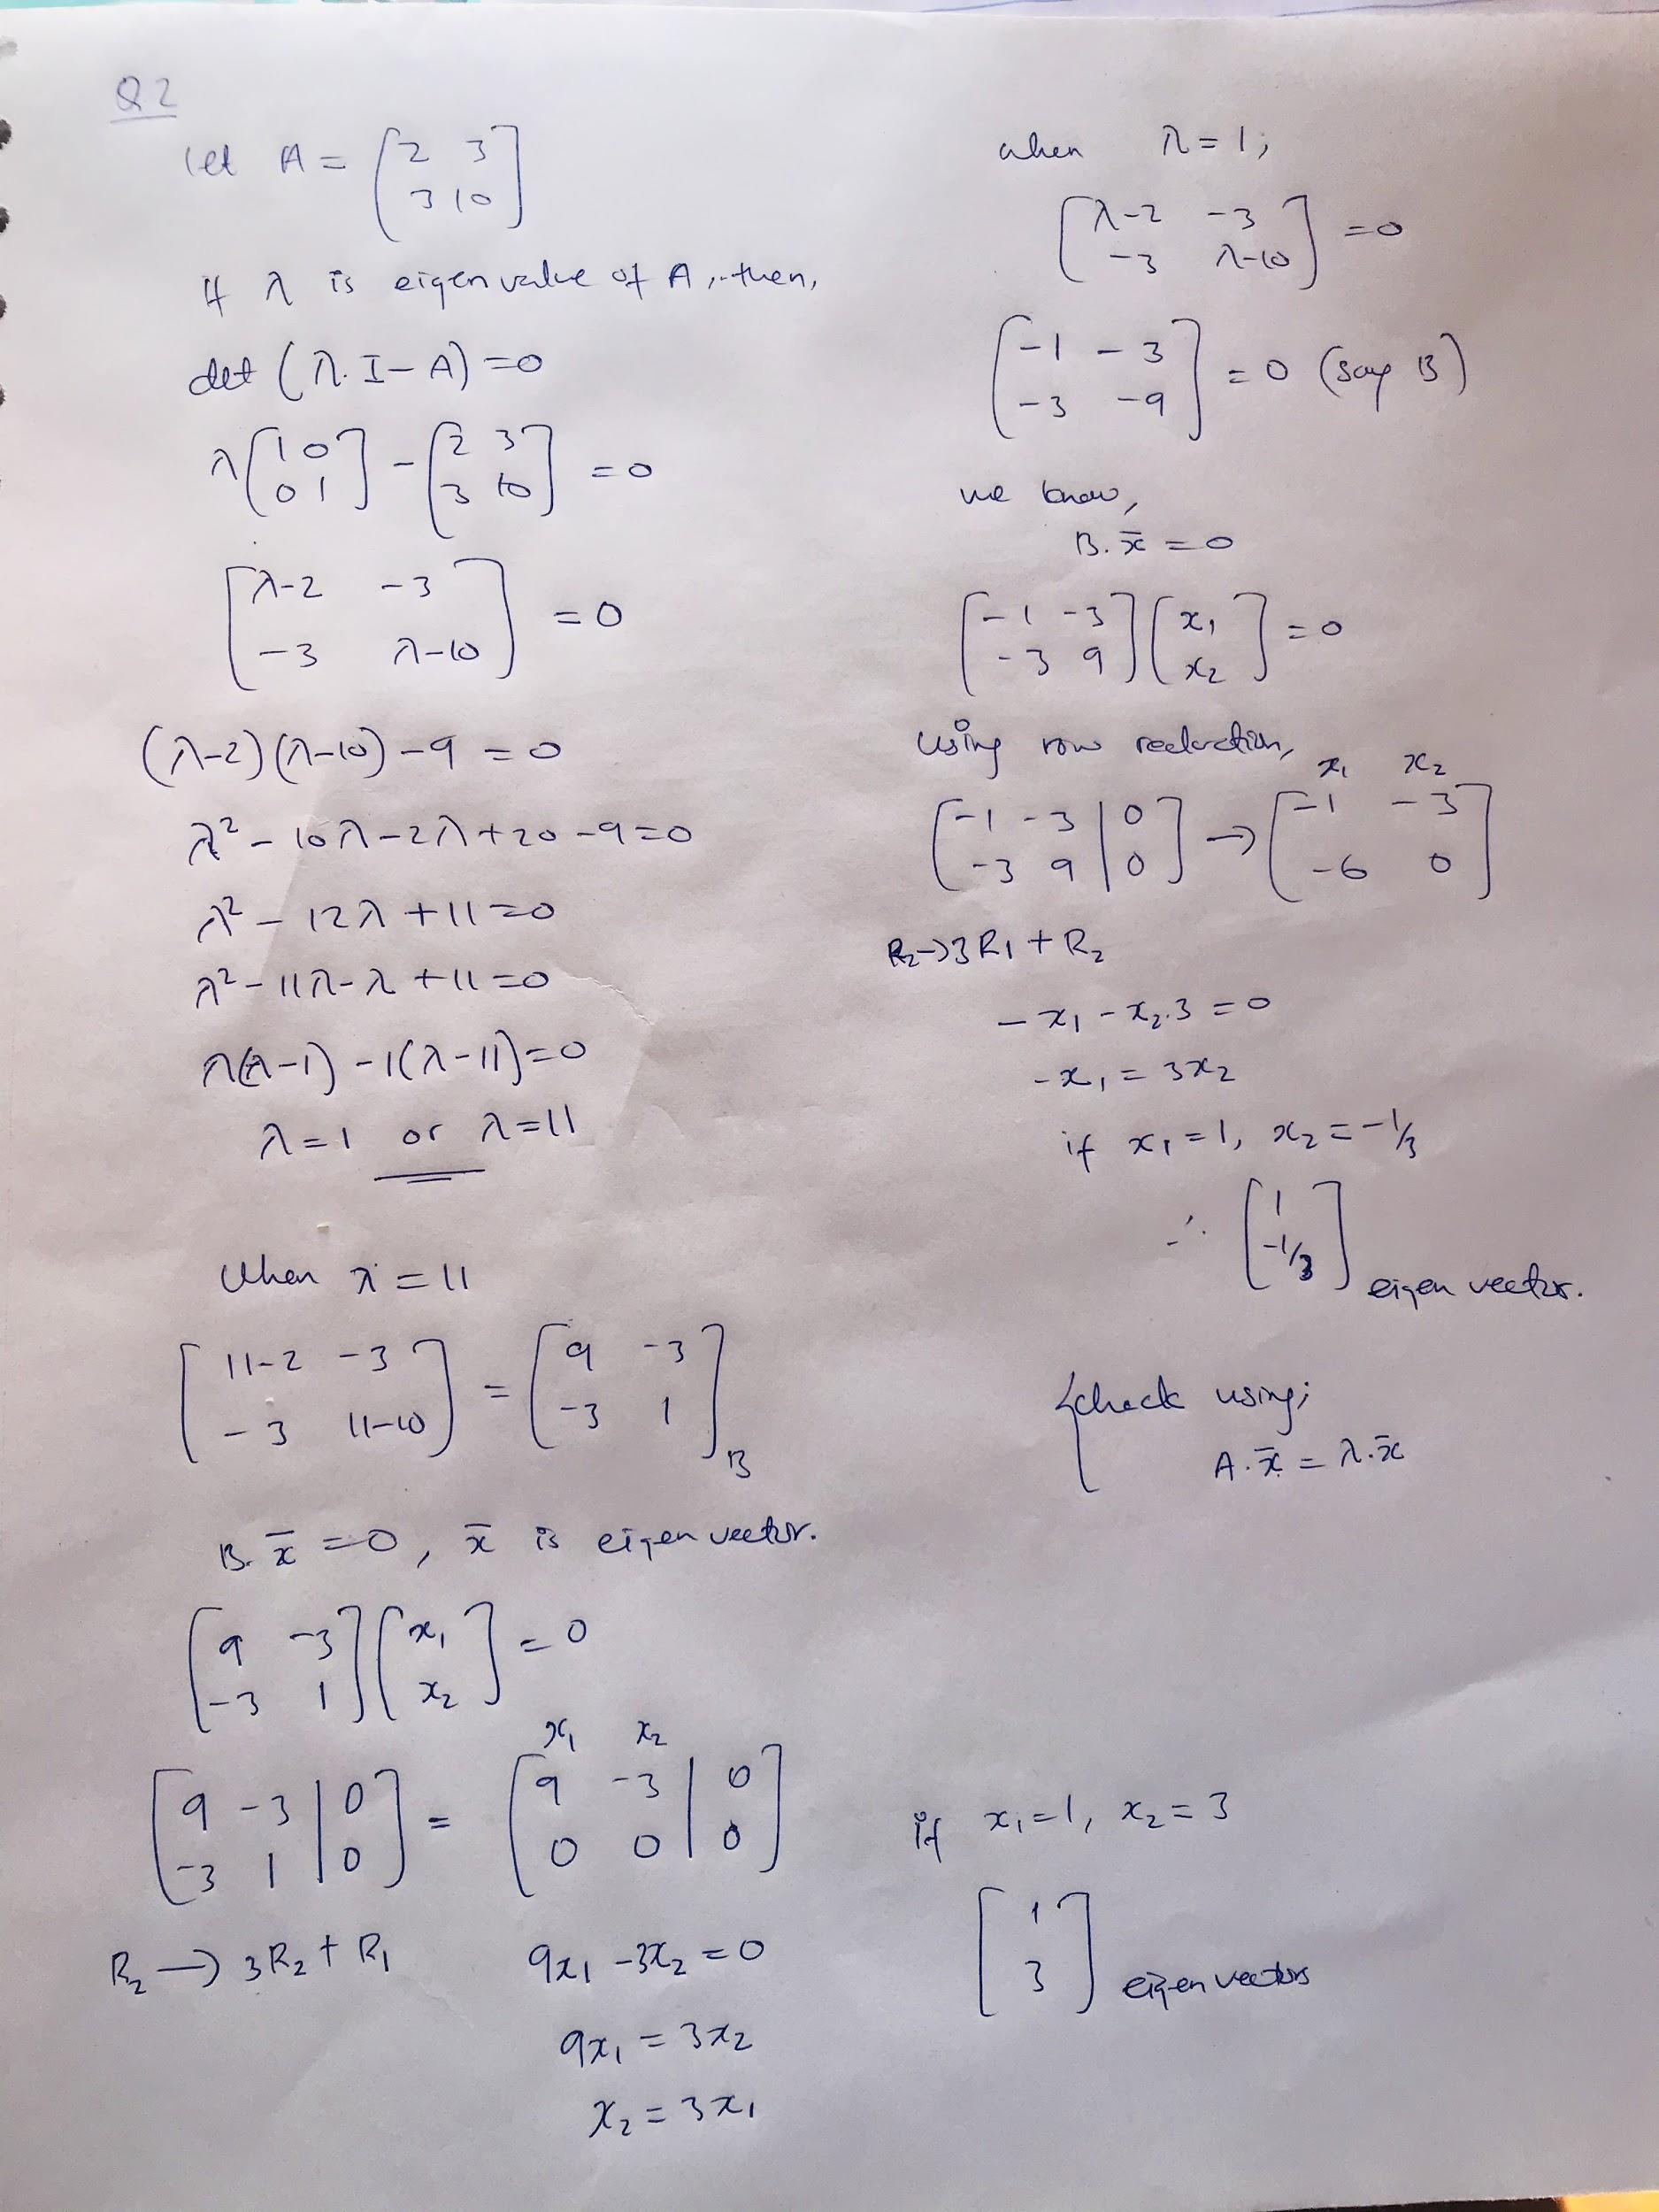 Q2
let A = [2 3
3 10]
If λ is eigenvalue of A, then,
det (λ. I - A) = 0
λ[1 0
0 1] - [2 3
3 10] = 0
[λ-2 -3
-3 λ-10] = 0
(λ-2)(λ-10) - 9 = 0
λ² - 10λ - 2λ + 20 - 9 = 0
λ² - 12λ + 11 = 0
λ² - 11λ - λ + 11 = 0
λ(λ-1) - 1(λ-11) = 0
λ = 1 or λ = 11
When λ = 11
[11-2 -3
-3 11-10] = [9 -3
-3 1]B
B. x̄ = 0, x̄ is eigen vector.
[9 -3
-3 1] [x₁
x₂] = 0
x₁ x₂
[9 -3 | 0
-3 1 | 0] = [9 -3 | 0
0 0 | 0]
R₂ → 3R₂ + R₁
9x₁ - 3x₂ = 0
9x₁ = 3x₂
x₂ = 3x₁
when λ = 1;
[λ-2 -3
-3 λ-10] = 0
[-1 -3
-3 -9] = 0 (say B)
we know,
B. x̄ = 0
[-1 -3
-3 9] [x₁
x₂] = 0
using row reduction,
x₁ x₂
[-1 -3 | 0
-3 9 | 0] → [-1 -3
-6 0]
R₂ → 3R₁ + R₂
- x₁ - x₂.3 = 0
-x₁ = 3x₂
if x₁ = 1, x₂ = -1/3
∴ [1
-1/3] eigen vector.
{check using;
A. x̄ = λ. x̄
if x₁ = 1, x₂ = 3
[1
3] eigen vectors